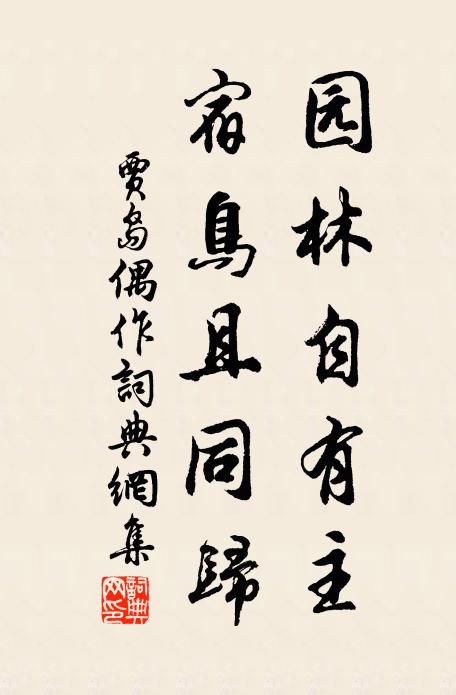 园林自有主
宿鳥且同歸
賈島偶作詞典網集
詞典
网印